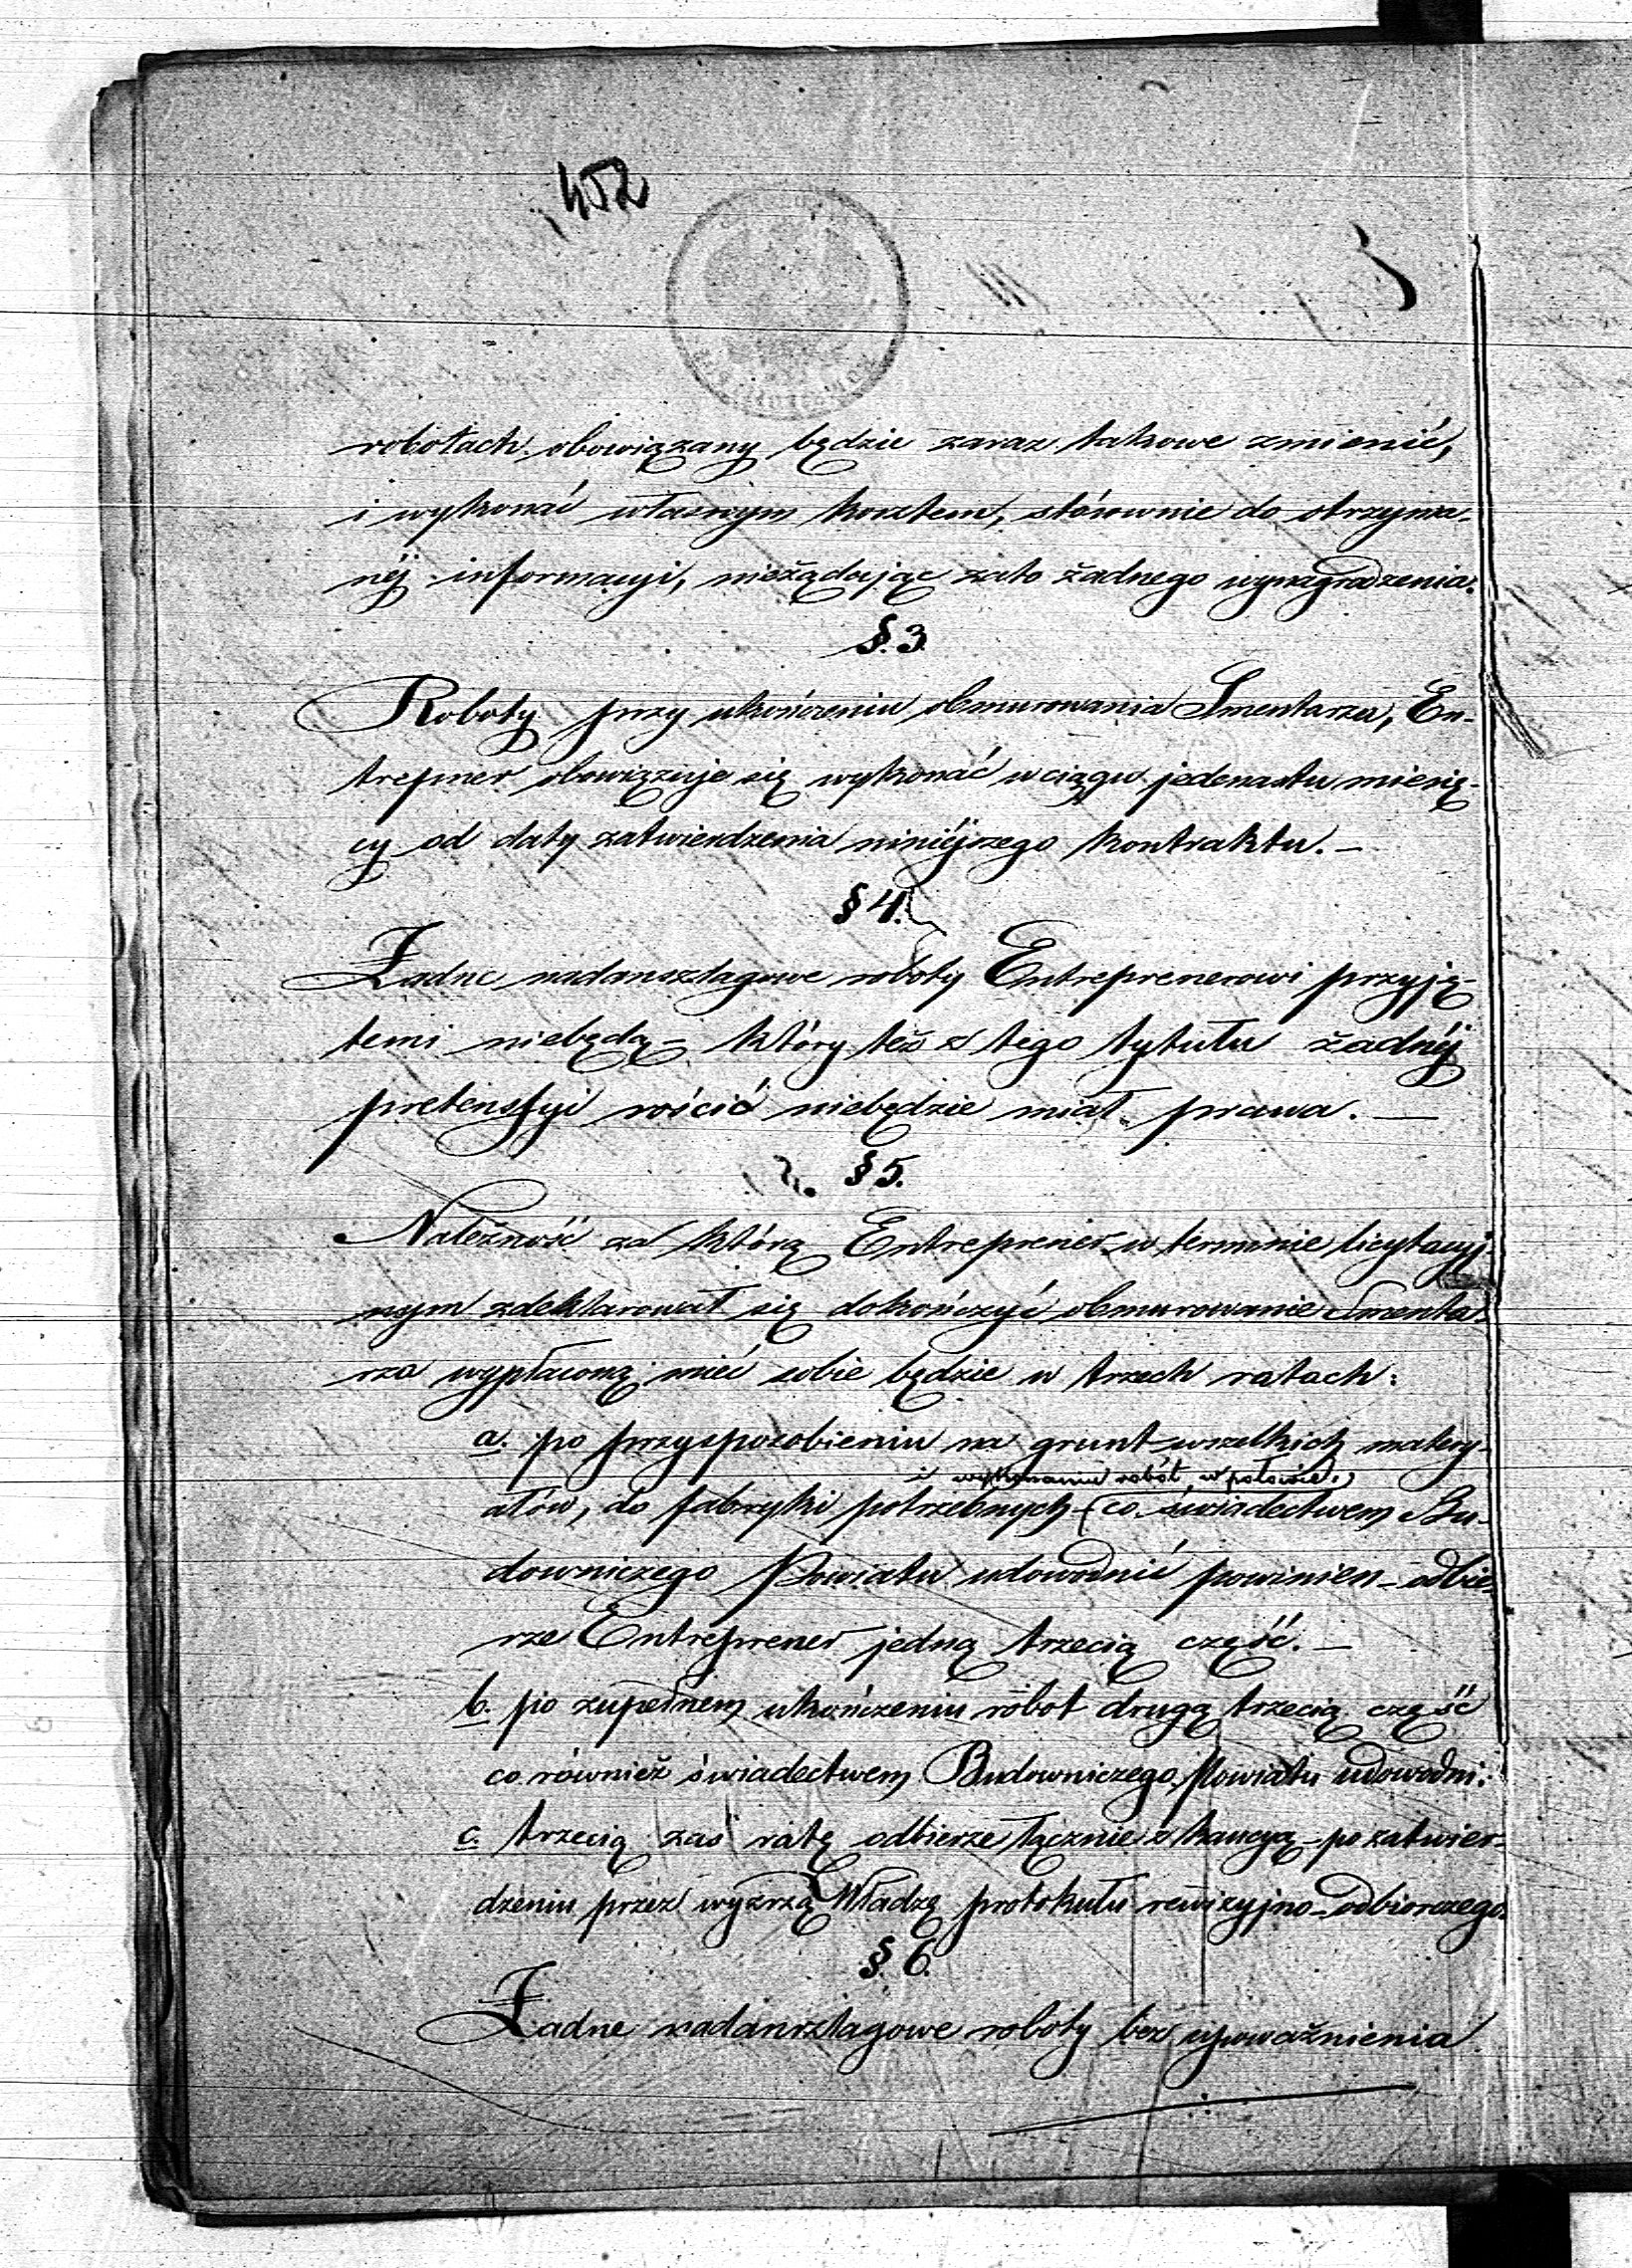 452
robotach obowiązany będzie zaraz takowe zmienić,
i wykonać własnym kosztem, stósownie do otrzyma-
néj informacyi, nieżądając zato żadnego wynagrodzenia.
§. 3.
Roboty przy ukończeniu obmurowania Smentarza, En-
trepner obowiązuje się wykonać w ciągu jedenastu miesię-
cy od daty zatwierdzenia niniéjszego kontraktu. —
§ 4.
Żadne nadanszlagowe roboty Entreprenerowi przyję-
temi niebędą — który też z tego tytułu żadnéj
pretensyi rościć niebędzie miał prawa. —
§ 5.
Należność za którą Entreprener w terminie licytacyj-
nym zdeklarował się dokończyć obmurowanie Smenta-
rza wypłaconą mieć sobie będzie w trzech ratach:
a. po przysposobieniu na grunt wszelkich matery-
i wykonaniu robót w połowie.
ałów, do fabryki potrzebnych (co świadectwem Bu-
downiczego Powiatu udowodnić powinien — odbie-
rze Entreprener jedną trzecią część. —
b. po zupełnem ukończeniu robót drugą trzecią część
co również świadectwem Budowniczego Powiatu udowodni.
c. trzecią zaś ratę odbierze łącznie z kaucyą — po zatwier-
dzeniu przez wyższą Władzę protokułu rewizyjno-odbiorczego.
§. 6.
Żadne nadanszlagowe roboty bez upoważnienia